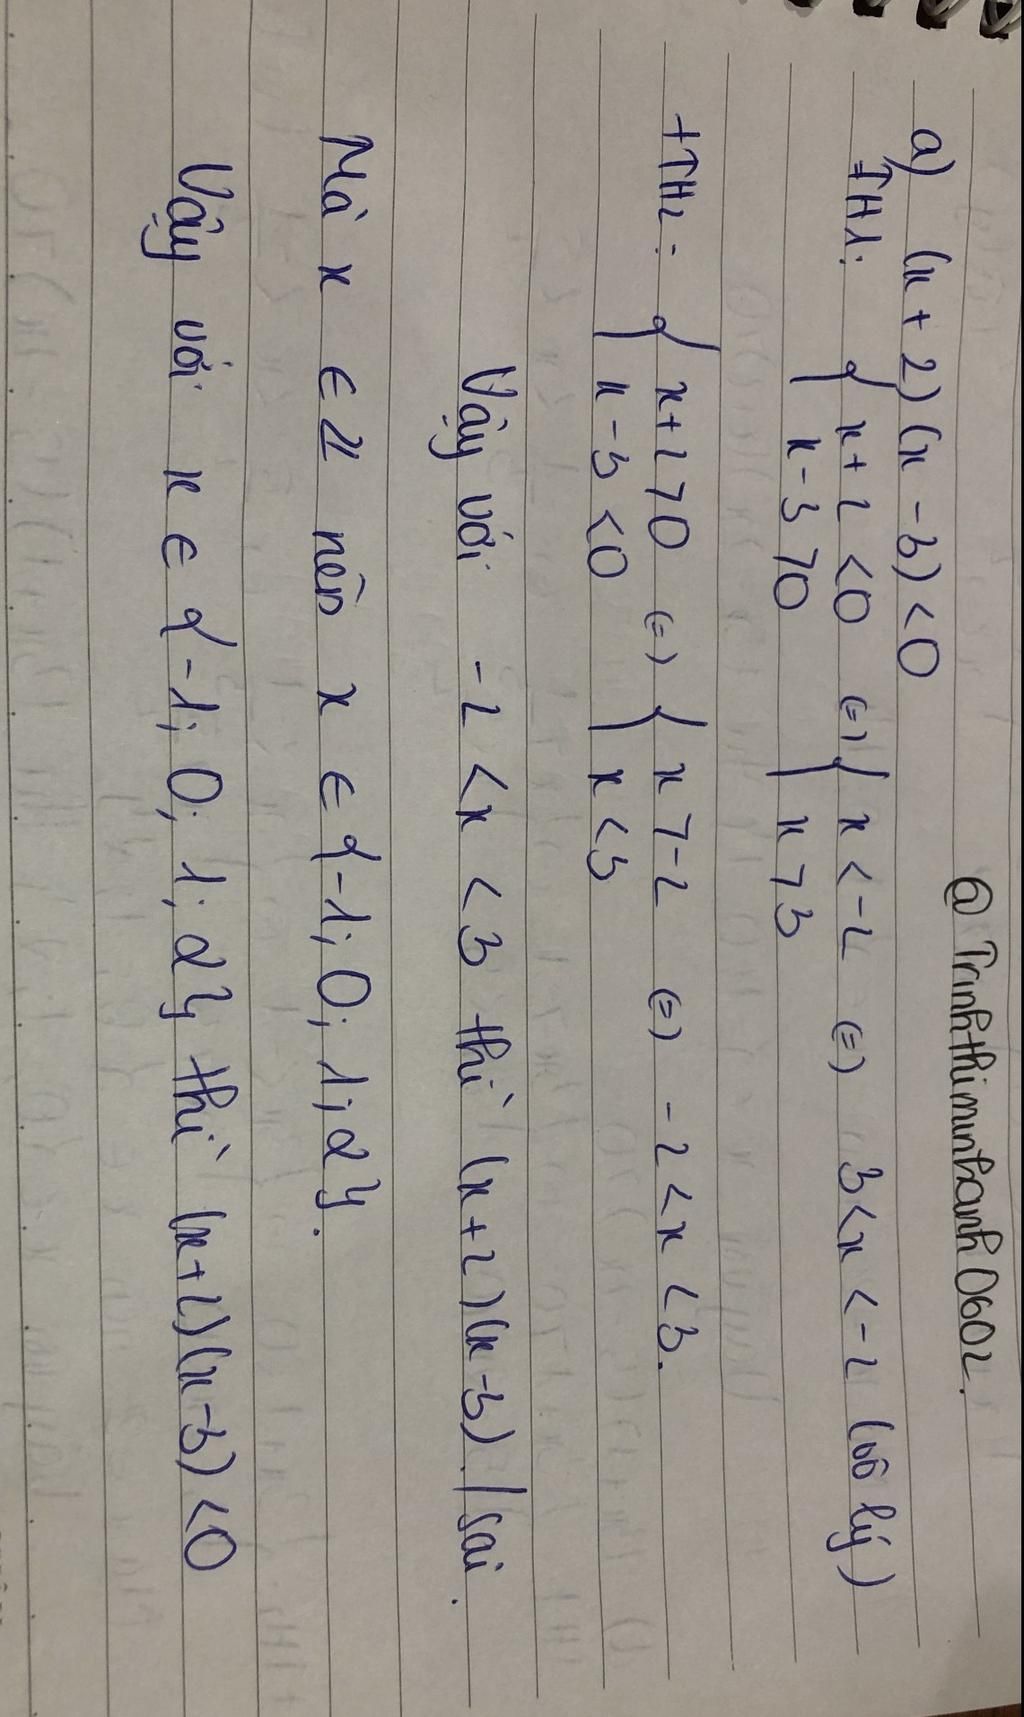 @ Trinhthiminhanh0602.
a) (x + 2) (x - 3) < 0
+TH1: { x+2 <0 (=) { x < -2 (=) 3<x < -2 (vô lý)
x - 3 >0 x >3
+TH2: { x+2 >0 (=) { x >-2 (=) -2<x <3.
x - 3 <0 x <3
Vậy với -2 <x <3 thì (x+2)(x-3). / Sai.
Mà x ∈ Z nên x ∈ {-1; 0; 1; 2}.
Vậy với x ∈ {-1; 0; 1; 2} thì (x+2)(x-3) <0